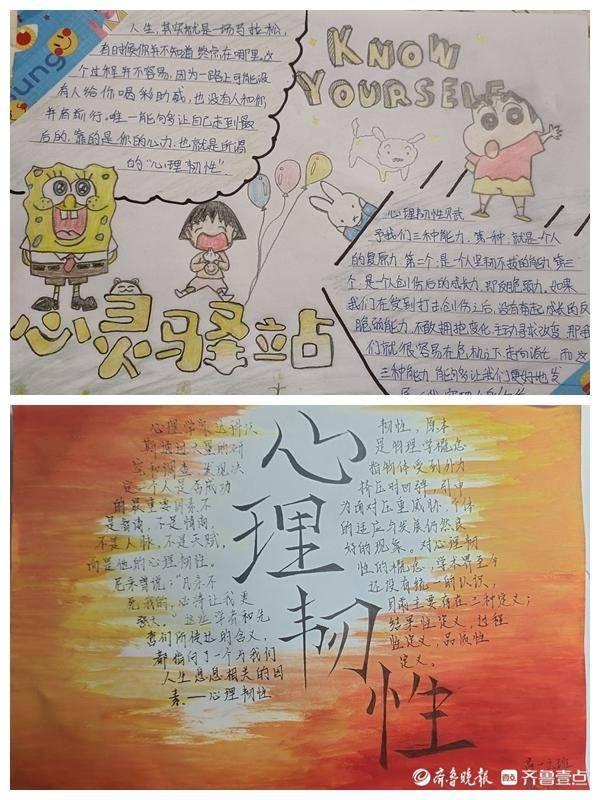 人生,其实就是一场马拉松,
有时候你并不知道终点在哪里。这
个过程并不容易,因为一路上可能没
有人给你喝彩助威,也没有人和你
并肩前行。唯一能够让自己走到最
后的,靠的是你的心力,也就是所谓
的“心理韧性”
KNOW
YOURSELF
心理韧性赋
予我们三种能力,第一种,就是个人
的复原力,第二个,是个人坚韧不拔的能力,第三
个,是个创伤后的成长力,即反脆弱力。如果
我们在受到打击创伤之后,没有看起成长的反
脆弱能力,不敢拥抱变化,主动寻求改变,那我
们就很容易在危机之下走向消亡,而这
三种能力,能够让我们更好地发
心灵驿站
心理韧性
心理学家达科沃
斯通过大量的研
究和调查,发现决
定一个人是否成功
的最重要因素不
是智商,不是情商,
不是人脉,不是天赋,
而是他的心理韧性。
尼采曾说:“凡杀不
死我的,必将让我更
强大。”这些学者和先
哲们所传达的含义,
都指向了一个与我们
人生息息相关的因
素——心理韧性
韧性,原本
是物理学概念
指物体受到外力
挤压时回弹,引申
为面对压重威胁,个体
的适应与发展仍然良
好的现象。对心理韧
性的概念,学术界至今
还没有统一的认识,
目前主要存在三种定义:
结果性定义,过程
性定义,品质性
定义。
高一六班
齐鲁晚报 齐鲁壹点